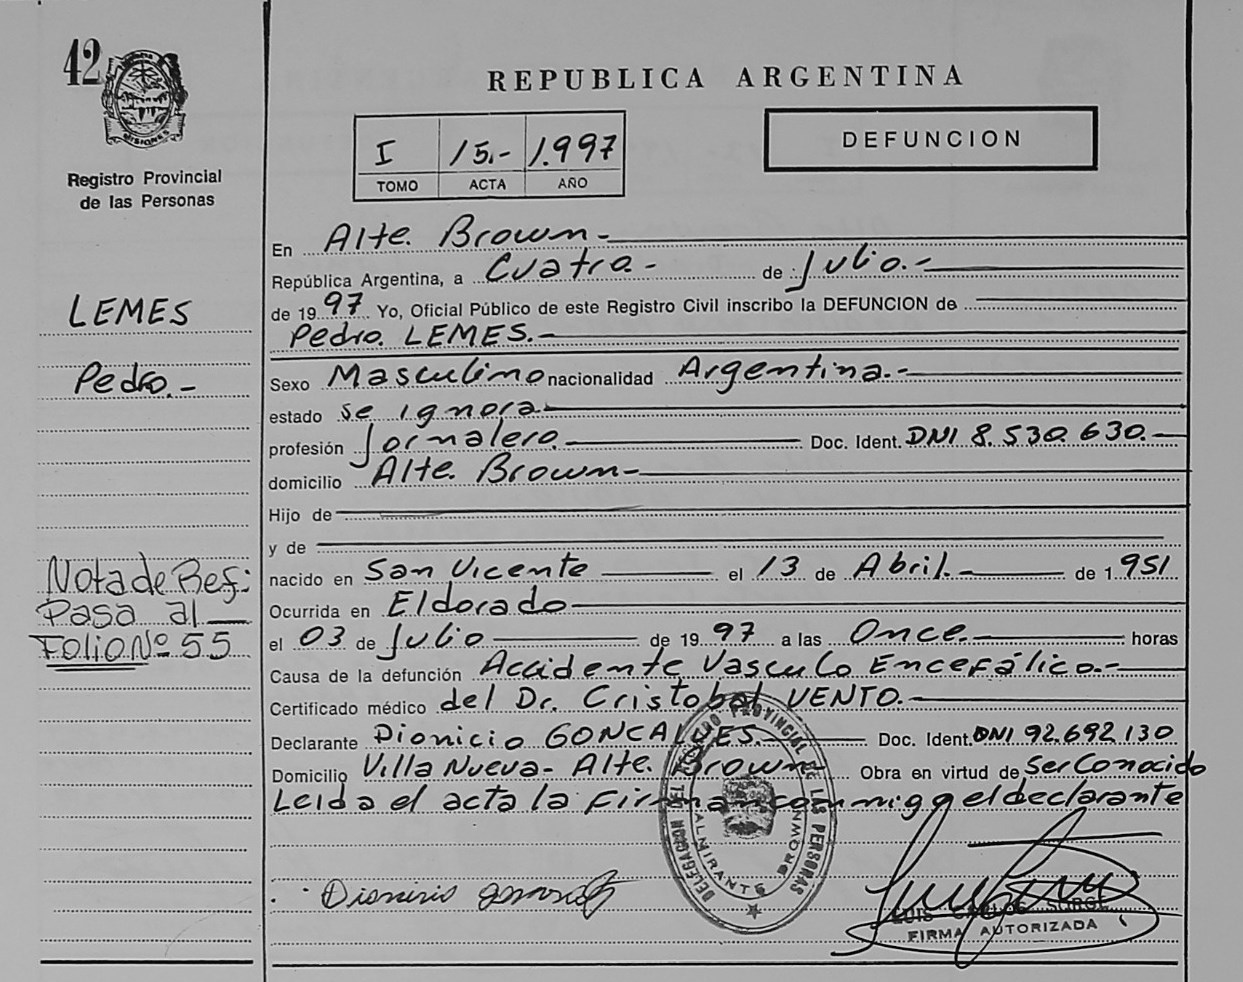 42
MISIONES
Registro Provincial
de las Personas
REPUBLICA ARGENTINA
I 15.- 1.997
TOMO ACTA AÑO
DEFUNCION
En Alte. Brown.-
República Argentina, a Cuatro.- de Julio.-
de 1997 Yo, Oficial Público de este Registro Civil inscribo la DEFUNCION de
Pedro. LEMES.-
Sexo Masculino nacionalidad Argentina.-
estado se ignora
profesión Jornalero. Doc. Ident. DNI 8.530.630.-
domicilio Alte. Brown-
Hijo de
y de
nacido en San Vicente el 13 de Abril.- de 1.951
Ocurrida en Eldorado
el 03 de Julio de 1997 a las Once. horas
Causa de la defunción Accidente Vasculo Encefálico.-
Certificado médico del Dr. Cristobal VENTO.-
Declarante Dionicio GONCALVES. Doc. Ident. DNI 92.692.130
Domicilio Villa Nueva- Alte. Brown Obra en virtud de ser Conocido
Leida el acta la firman conmigo el declarante
LEMES
Pedro.-
Nota de Ref:
Pasa al
Folio Nº 55
DELEGACION DEL REGISTRO PROVINCIAL DE LAS PERSONAS
ALMIRANTE BROWN
Dionicio
LUIS CARLOS SORGE
FIRMA AUTORIZADA